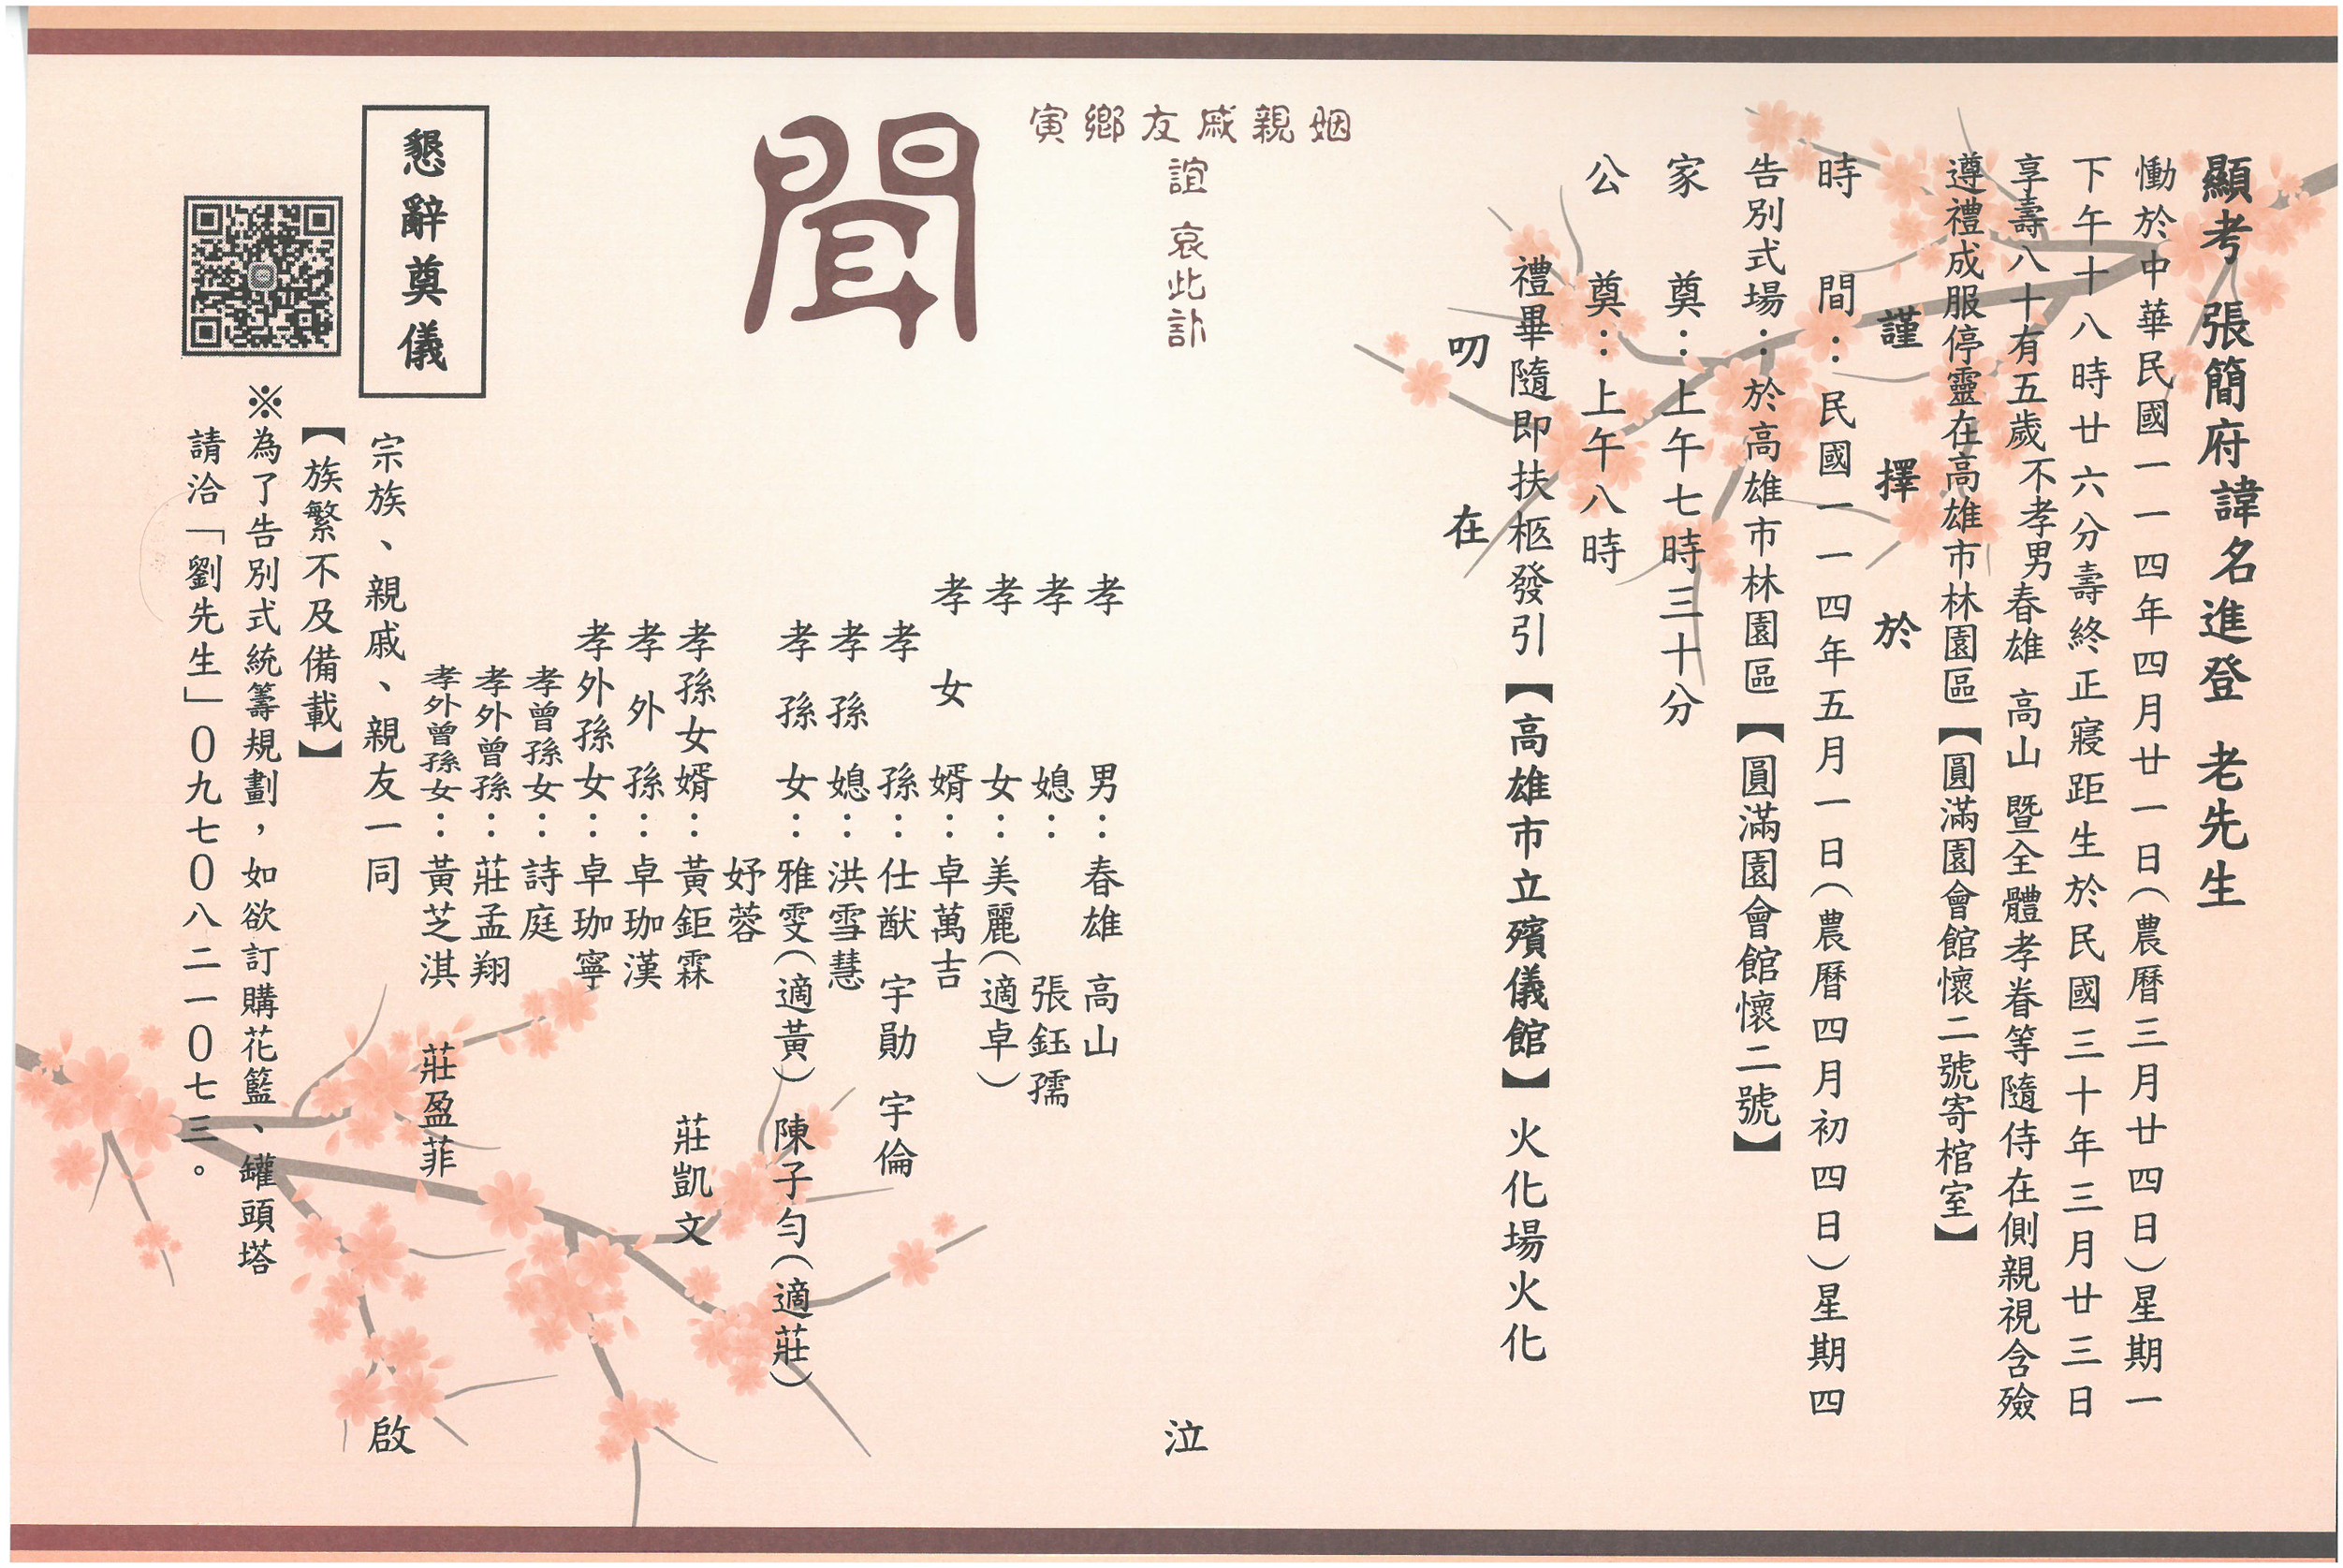 顯考 張簡府諱名進登 老先生
慟於中華民國一一四年四月廿一日(農曆三月廿四日)星期一
下午十八時廿六分壽終正寢距生於民國三十年三月廿三日
享壽八十有五歲不孝男春雄 高山 暨全體孝眷等隨侍在側親視含殮
遵禮成服停靈在高雄市林園區【圓滿園會館懷二號寄棺室】
謹擇於
時間：民國一一四年五月一日(農曆四月初四日)星期四
告別式場：於高雄市林園區【圓滿園會館懷二號】
家奠：上午七時三十分
公奠：上午八時
禮畢隨即扶柩發引【高雄市立殯儀館】火化場火化
叨在
姻親戚友鄉寅
誼 哀此訃
聞
泣
孝男：春雄 高山
孝媳：張鈺孺
孝女：美麗(適卓)
孝女婿：卓萬吉
孝孫：仕猷 宇勛 宇倫
孝孫媳：洪雪慧
孝孫女：雅雯(適黃) 陳子勻(適莊)
妤蓉
孝孫女婿：黃鉅霖 莊凱文
孝外孫：卓珈漢
孝外孫女：卓珈寧
孝曾孫女：詩庭
孝外曾孫：莊孟翔
孝外曾孫女：黃芝淇 莊盈菲
宗族、親戚、親友一同
啟
【族繁不及備載】
懇辭奠儀
※為了告別式統籌規劃，如欲訂購花籃、罐頭塔
請洽「劉先生」0九七0八二一0七三。